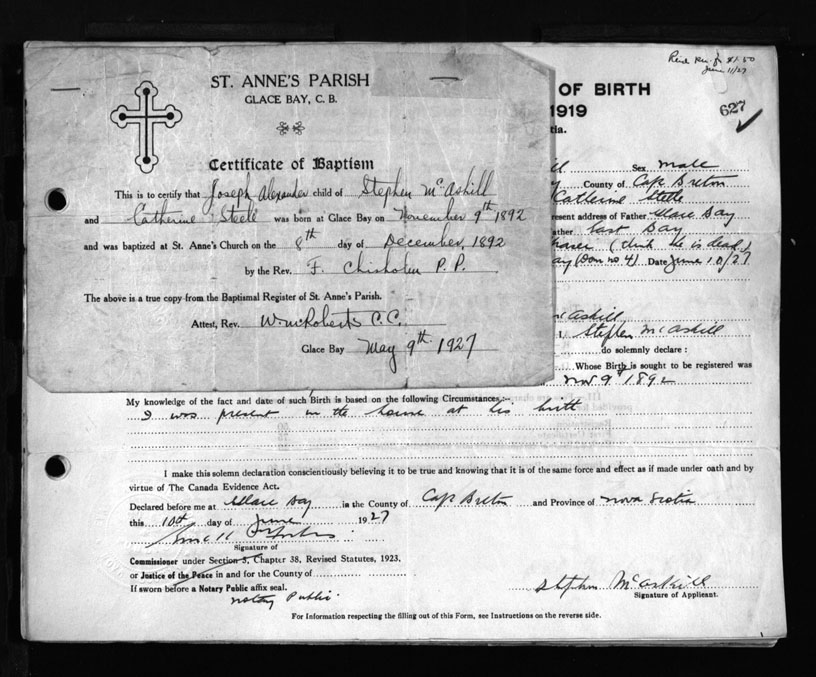 Read
June 11/27
ST. ANNE'S PARISH
GLACE BAY, C. B.
Certificate of Baptism
This is to certify that Joseph Alexander child of Stephen McAskill
and Catherine Steele was born at Glace Bay on November 9th 1892
and was baptized at St. Anne's Church on the 8th day of December, 1892
by the Rev. F. Chisholm P. P.
The above is a true copy from the Baptismal Register of St. Anne's Parish.
Attest, Rev. C. C.
Glace Bay May 9th 1927
OF BIRTH
1919
627
tia.
ll Sex male
y County of Cape Breton
Catherine Steele
resent address of Father Glace Bay
ather East Bay
(think he is dead)
ay (Dom no 4) Date June 10/27
McAskill
I, Stephen McAskill
do solemnly declare :
Whose Birth is sought to be registered was
Nov 9th 1892
My knowledge of the fact and date of such Birth is based on the following Circumstances:-
I was present in the house at his birth
I make this solemn declaration conscientiously believing it to be true and knowing that it is of the same force and effect as if made under oath and by
virtue of The Canada Evidence Act.
Declared before me at Glace Bay in the County of Cape Breton and Province of Nova Scotia
this 10th day of June 1927
Signature of
Commissioner under Section 3, Chapter 38, Revised Statutes, 1923.
or Justice of the Peace in and for the County of
If sworn before a Notary Public affix seal.
Notary Public.
Stephen McAskill
Signature of Applicant.
For Information respecting the filling out of this Form, see Instructions on the reverse side.